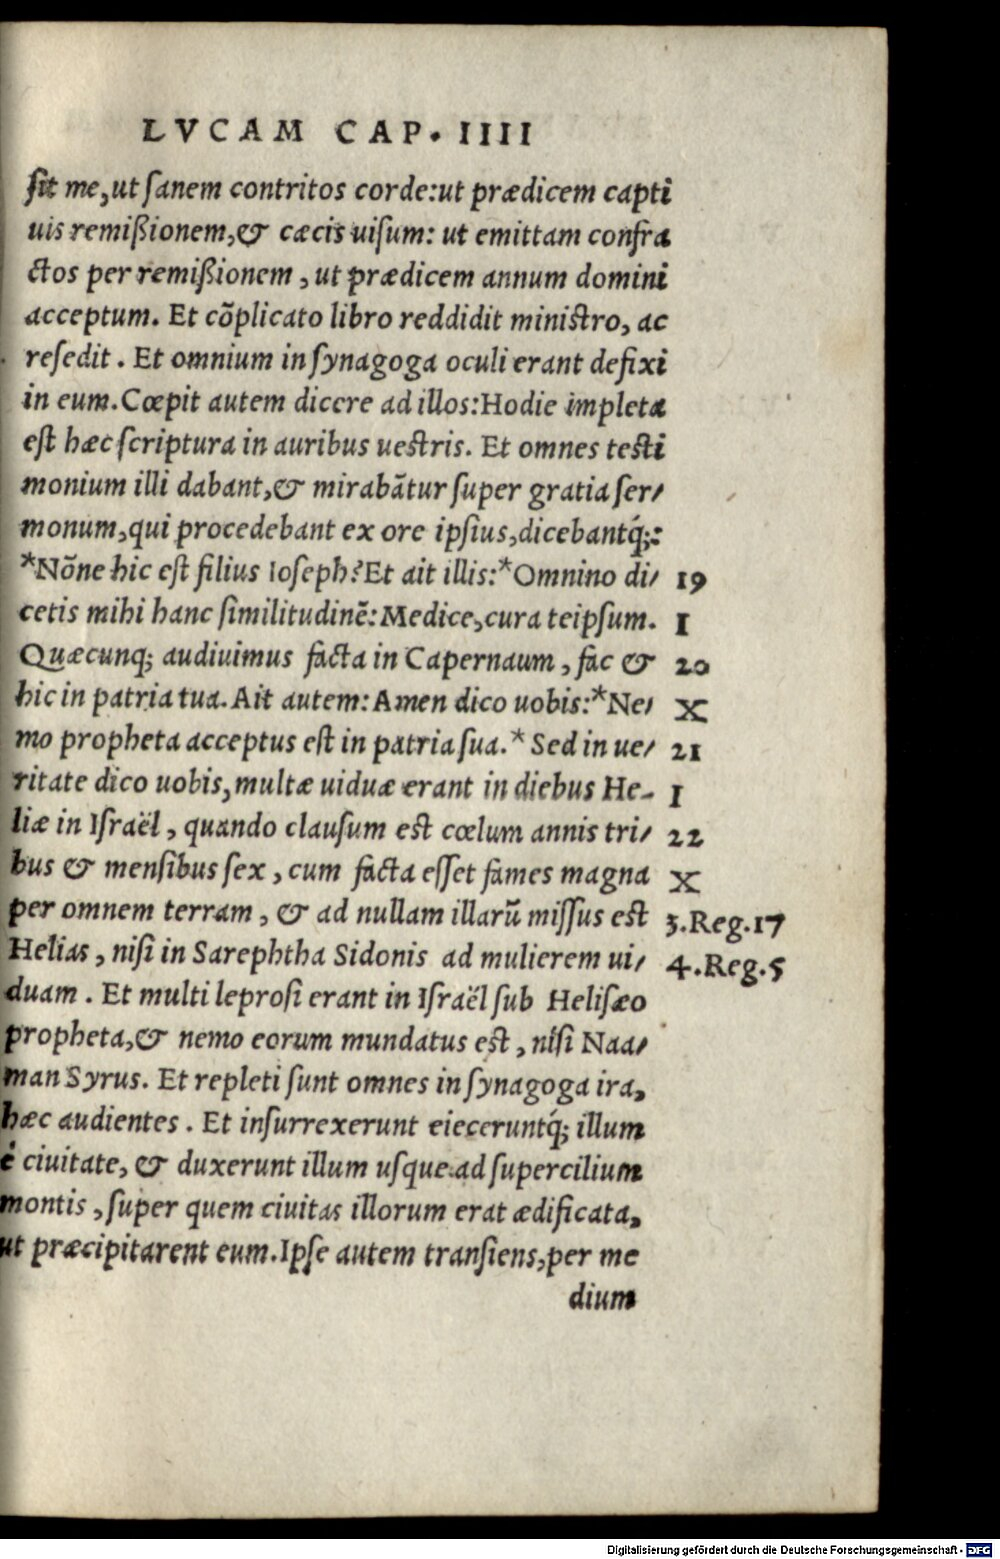 LVCAM CAP. IIII
ſit me, ut ſanem contritos corde: ut prædicem capti
uis remiſſionem, & cæcis uiſum: ut emittam confra
ctos per remiſſionem, ut prædicem annum domini
acceptum. Et cõplicato libro reddidit miniſtro, ac
reſedit. Et omnium in ſynagoga oculi erant defixi
in eum. Cœpit autem dicere ad illos: Hodie impleta
eſt hæc ſcriptura in auribus ueſtris. Et omnes teſti
monium illi dabant, & mirabãtur ſuper gratia ſer/
monum, qui procedebant ex ore ipſius, dicebantq́;:
*Nõne hic eſt filius Ioſeph? Et ait illis: *Omnino di/ 19
cetis mihi hanc ſimilitudinẽ: Medice, cura teipſum. I
Quæcunq; audiuimus facta in Capernaum, fac & 20
hic in patria tua. Ait autem: Amen dico uobis: *Ne/ X
mo propheta acceptus eſt in patria ſua. * Sed in ue/ 21
ritate dico uobis, multæ uiduæ erant in diebus He- I
liæ in Iſraël, quando clauſum eſt cœlum annis tri/ 22
bus & menſibus ſex, cum facta eſſet fames magna X
per omnem terram, & ad nullam illarũ miſſus eſt 3.Reg.17
Helias, niſi in Sarephtha Sidonis ad mulierem ui/ 4.Reg.5
duam. Et multi leproſi erant in Iſraël ſub Heliſæo
propheta, & nemo eorum mundatus eſt, niſi Naa/
man Syrus. Et repleti ſunt omnes in ſynagoga ira,
hæc audientes. Et inſurrexerunt eieceruntq́; illum
è ciuitate, & duxerunt illum uſque ad ſupercilium
montis, ſuper quem ciuitas illorum erat ædificata,
ut præcipitarent eum. Ipſe autem tranſiens, per me
dium
Digitalisierung gefördert durch die Deutsche Forschungsgemeinschaft - DFG